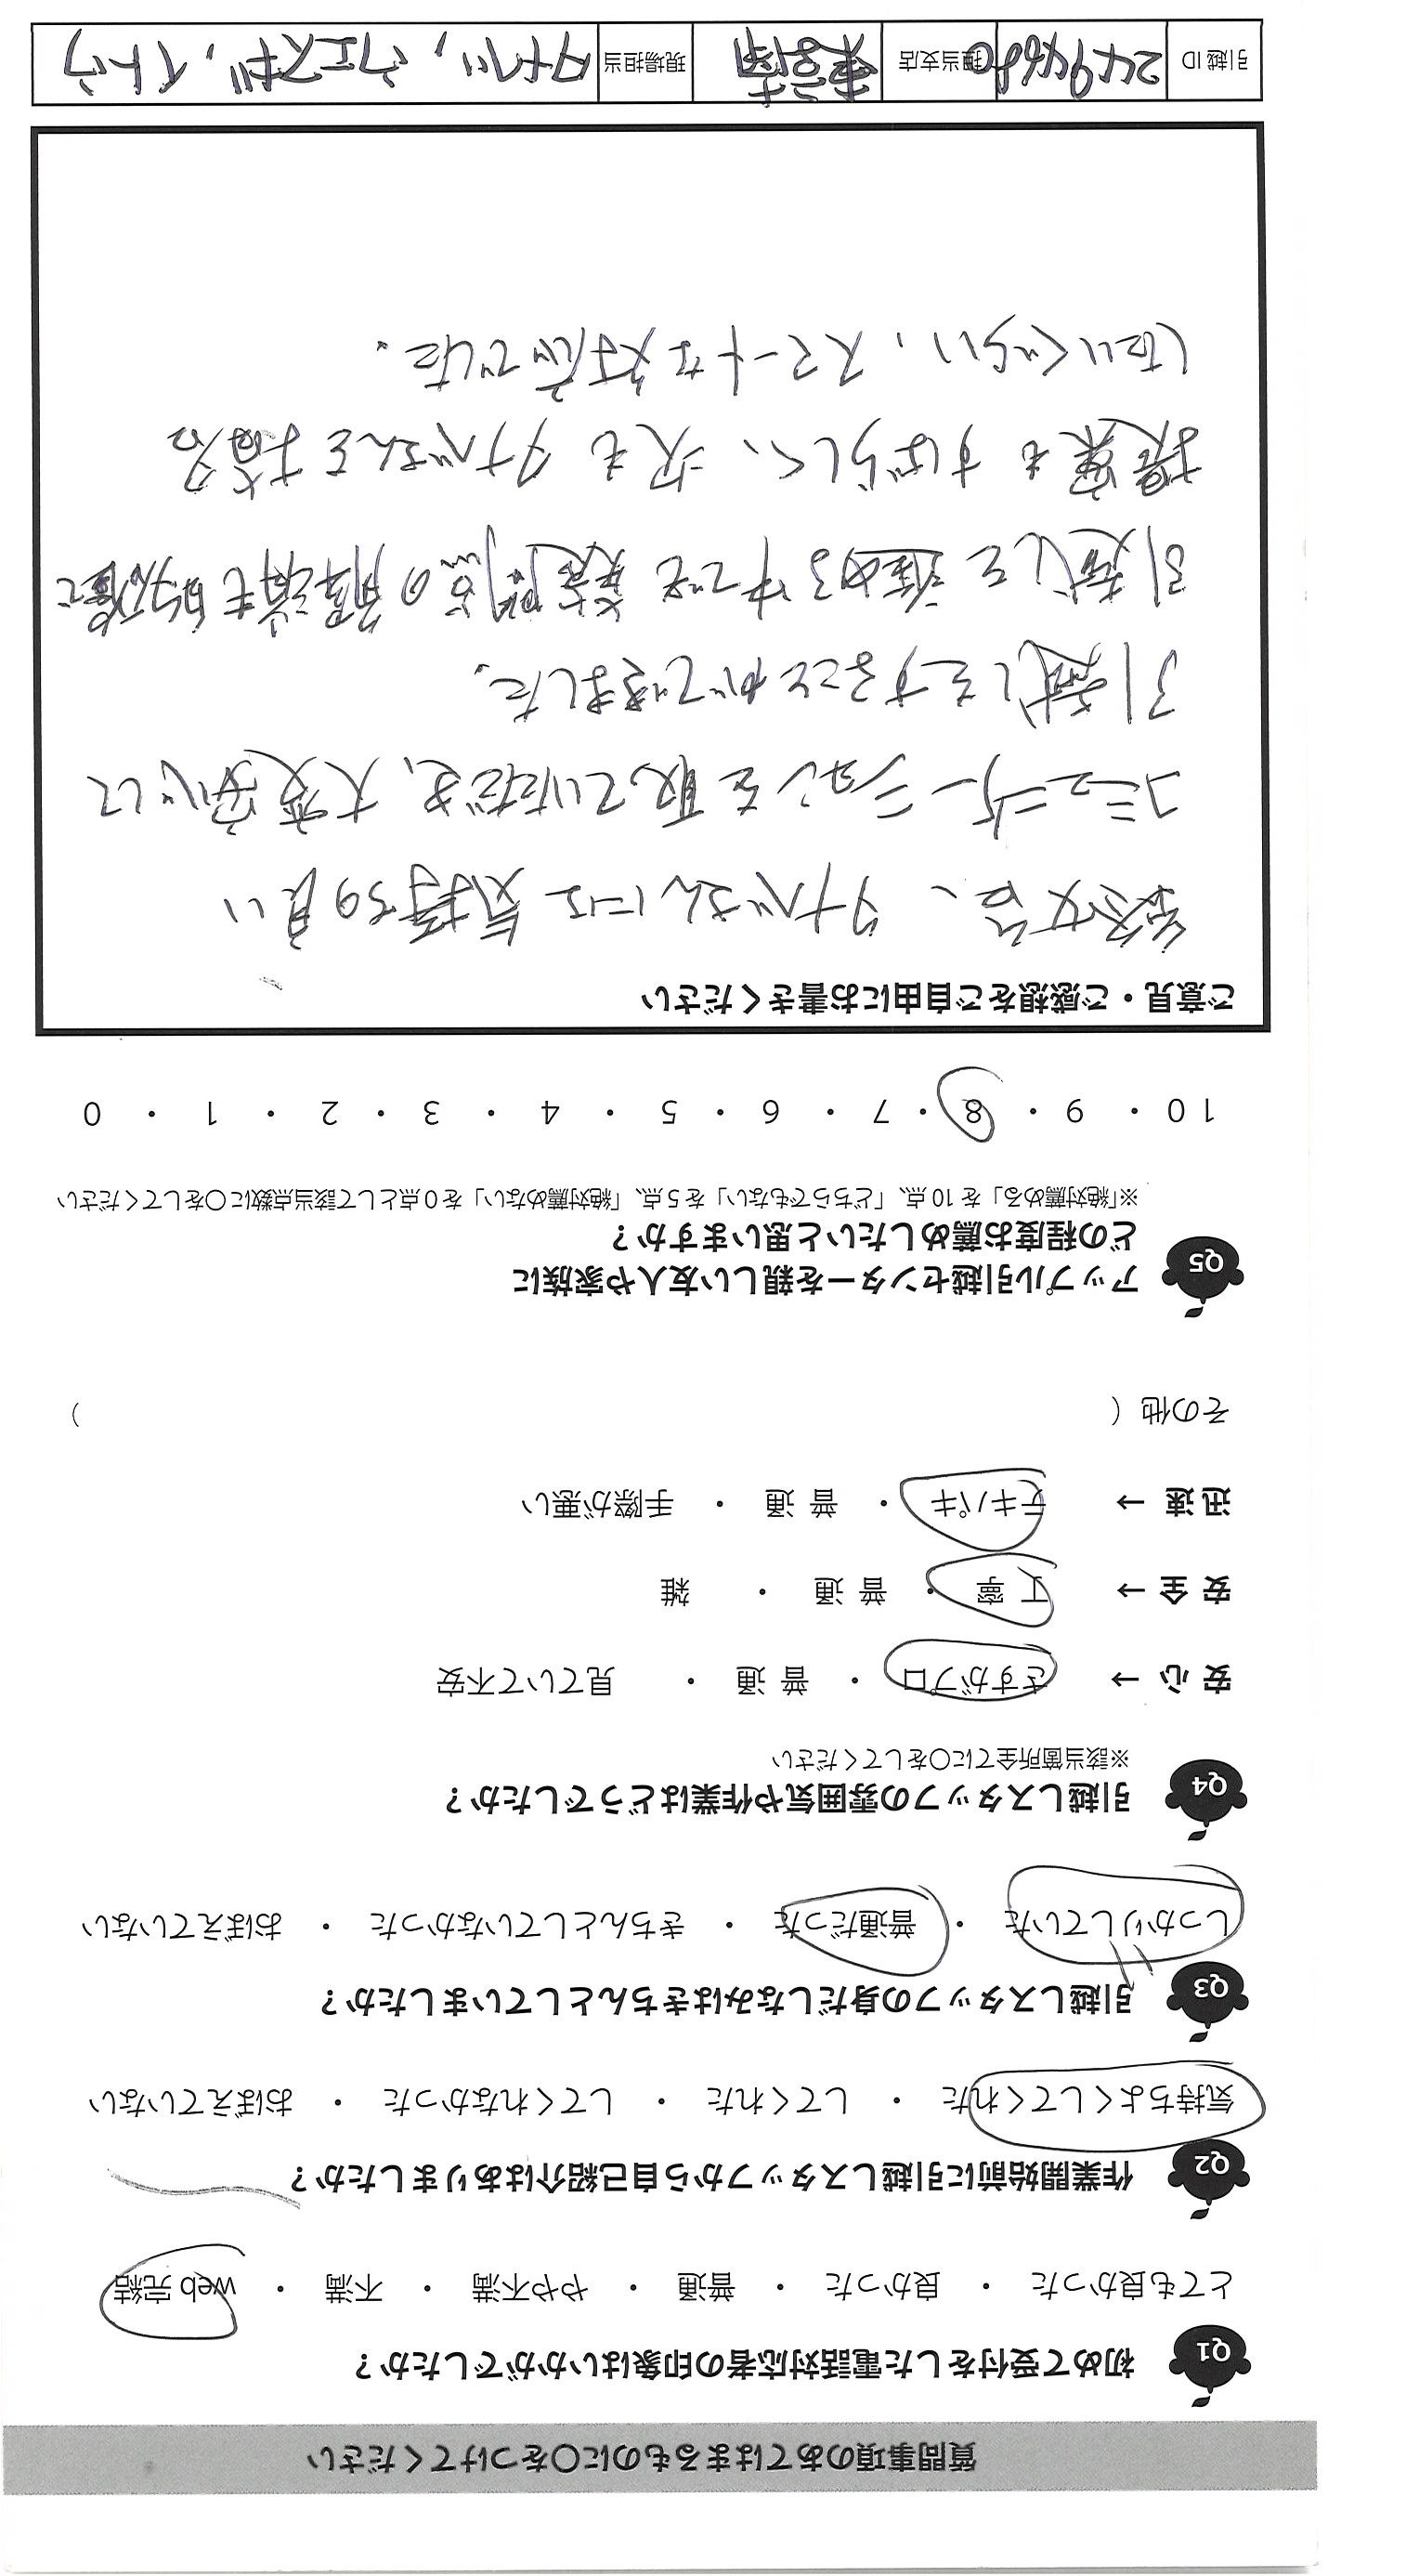 質問事項のあてはまるものに〇をつけてください
Q1 初めて受付をした電話対応者の印象はいかがでしたか？
とても良かった ・ 良かった ・ 普通 ・ やや不満 ・ 不満 ・ web 完結
Q2 作業開始前に引越しスタッフから自己紹介はありましたか？
気持ちよくしてくれた ・ してくれた ・ してくれなかった ・ おぼえていない
Q3 引越しスタッフの身だしなみはきちんとしていましたか？
しっかりしていた ・ 普通だった ・ きちんとしていなかった ・ おぼえていない
Q4 引越しスタッフの雰囲気や作業はどうでしたか？
※該当箇所全てに〇をしてください
安心 → さすがプロ ・ 普通 ・ 見ていて不安
安全 → 丁寧 ・ 普通 ・ 雑
迅速 → テキパキ ・ 普通 ・ 手際が悪い
その他（ ）
Q5 アップル引越センターを親しい友人や家族に
どの程度お薦めしたいと思いますか？
※「絶対薦める」を10点、「どちらでもない」を5点、「絶対薦めない」を0点として該当点数に〇をしてください
10 ・ 9 ・ 8 ・ 7 ・ 6 ・ 5 ・ 4 ・ 3 ・ 2 ・ 1 ・ 0
ご意見・ご感想をご自由にお書きください
タナベさんには気持ちの良い
コミュニケーションを取っていただき、大変安心して
引越しをすることができました。
引越しを進める中でも疑問点の解消も
提案もすばらしく、次もタナベさんを指名
したいくらい、スマートな対応でした。
引越ID 担当支店 現場担当 タナベ,